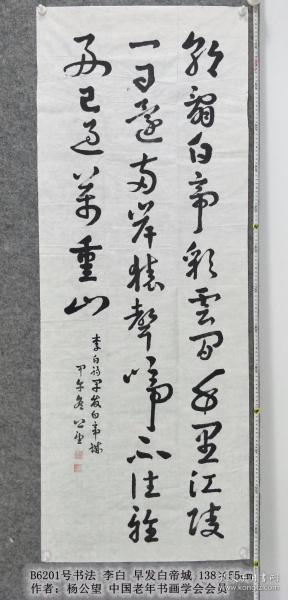 朝辭白帝彩雲间千里江陵
一日還兩岸猿聲啼不住輕
舟已過萬重山
李白詩早發白帝城
甲午冬公望
B6201号书法 李白 早发白帝城 138×55cm
作者：杨公望 中国老年书画学会会员